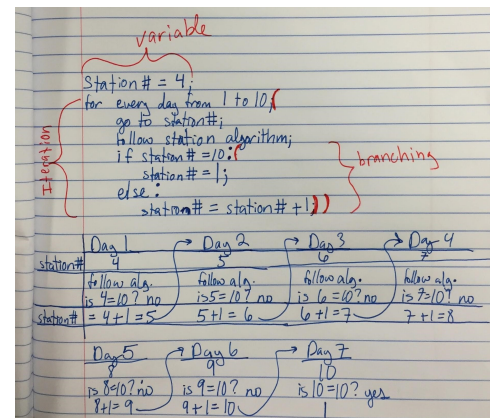 variable
Station# = 4;
for every day from 1 to 10,(
go to station#;
follow station algorithm;
if station# = 10:(
station# = 1;
else:
station# = station# + 1;))
Iteration
branching
Day 1 Day 2 Day 3 Day 4
station# 4 5 6 7
follow alg. follow alg. follow alg. follow alg.
is 4=10? no is 5=10? no is 6=10? no is 7=10? no
station# = 4+1=5 5+1=6 6+1=7 7+1=8
Day 5 Day 6 Day 7
8 9 10
is 8=10? no is 9=10? no is 10=10? yes
8+1=9 9+1=10 1